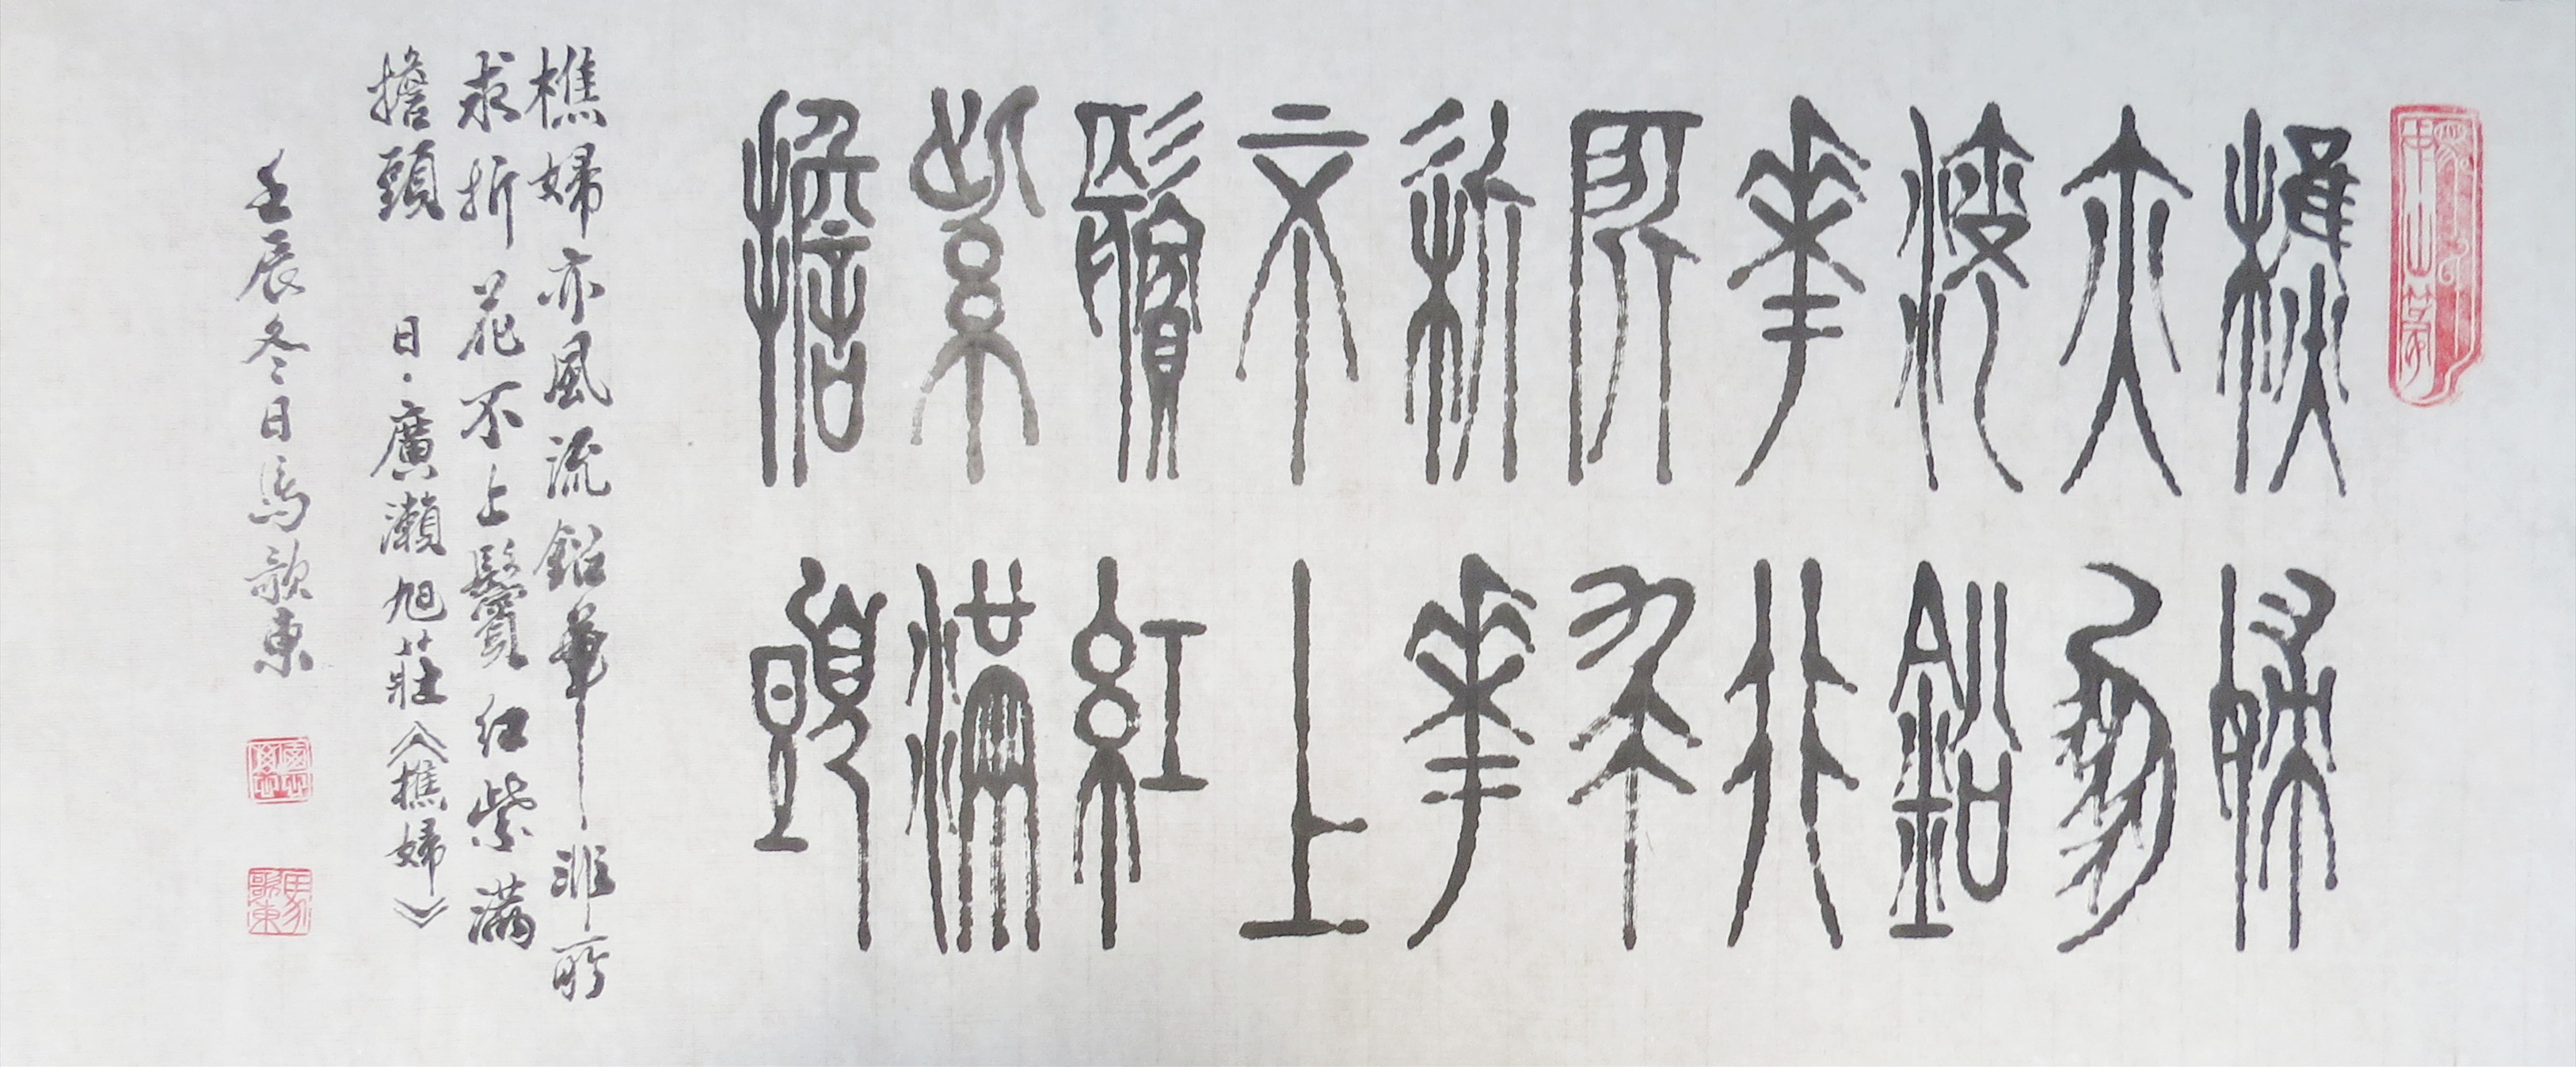 樵婦
亦風
流鉛
華非
所求
折花
不上
鬢紅
紫滿
擔頭
樵婦亦風流鉛華非所
求折花不上鬢紅紫滿
擔頭 日·廣瀨旭莊《樵婦》
壬辰冬日馬歌東
馬歌東